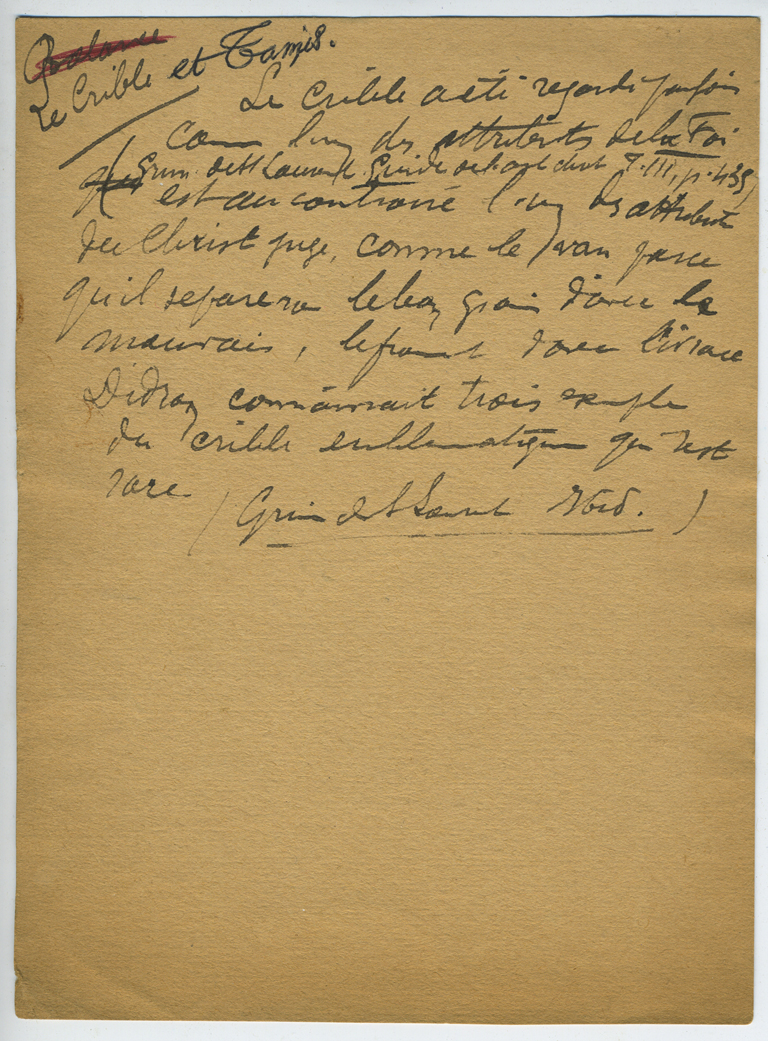 Balance
Le Crible et Tamis.
Le crible a été regardé parfois
comme l'un des attributs de la Foi
(Grim. de St Laurent. Guide de l'art chrét. T. III, p. 435)
est au contraire l'un des attributs
du Christ juge, comme le van parce
qu'il séparera le bon grain d'avec le
mauvais, le froment d'avec l'ivraie
Didron connaissait trois exemple
du crible emblématique qui est
rare
(Grim de St Laurent Ibid.)